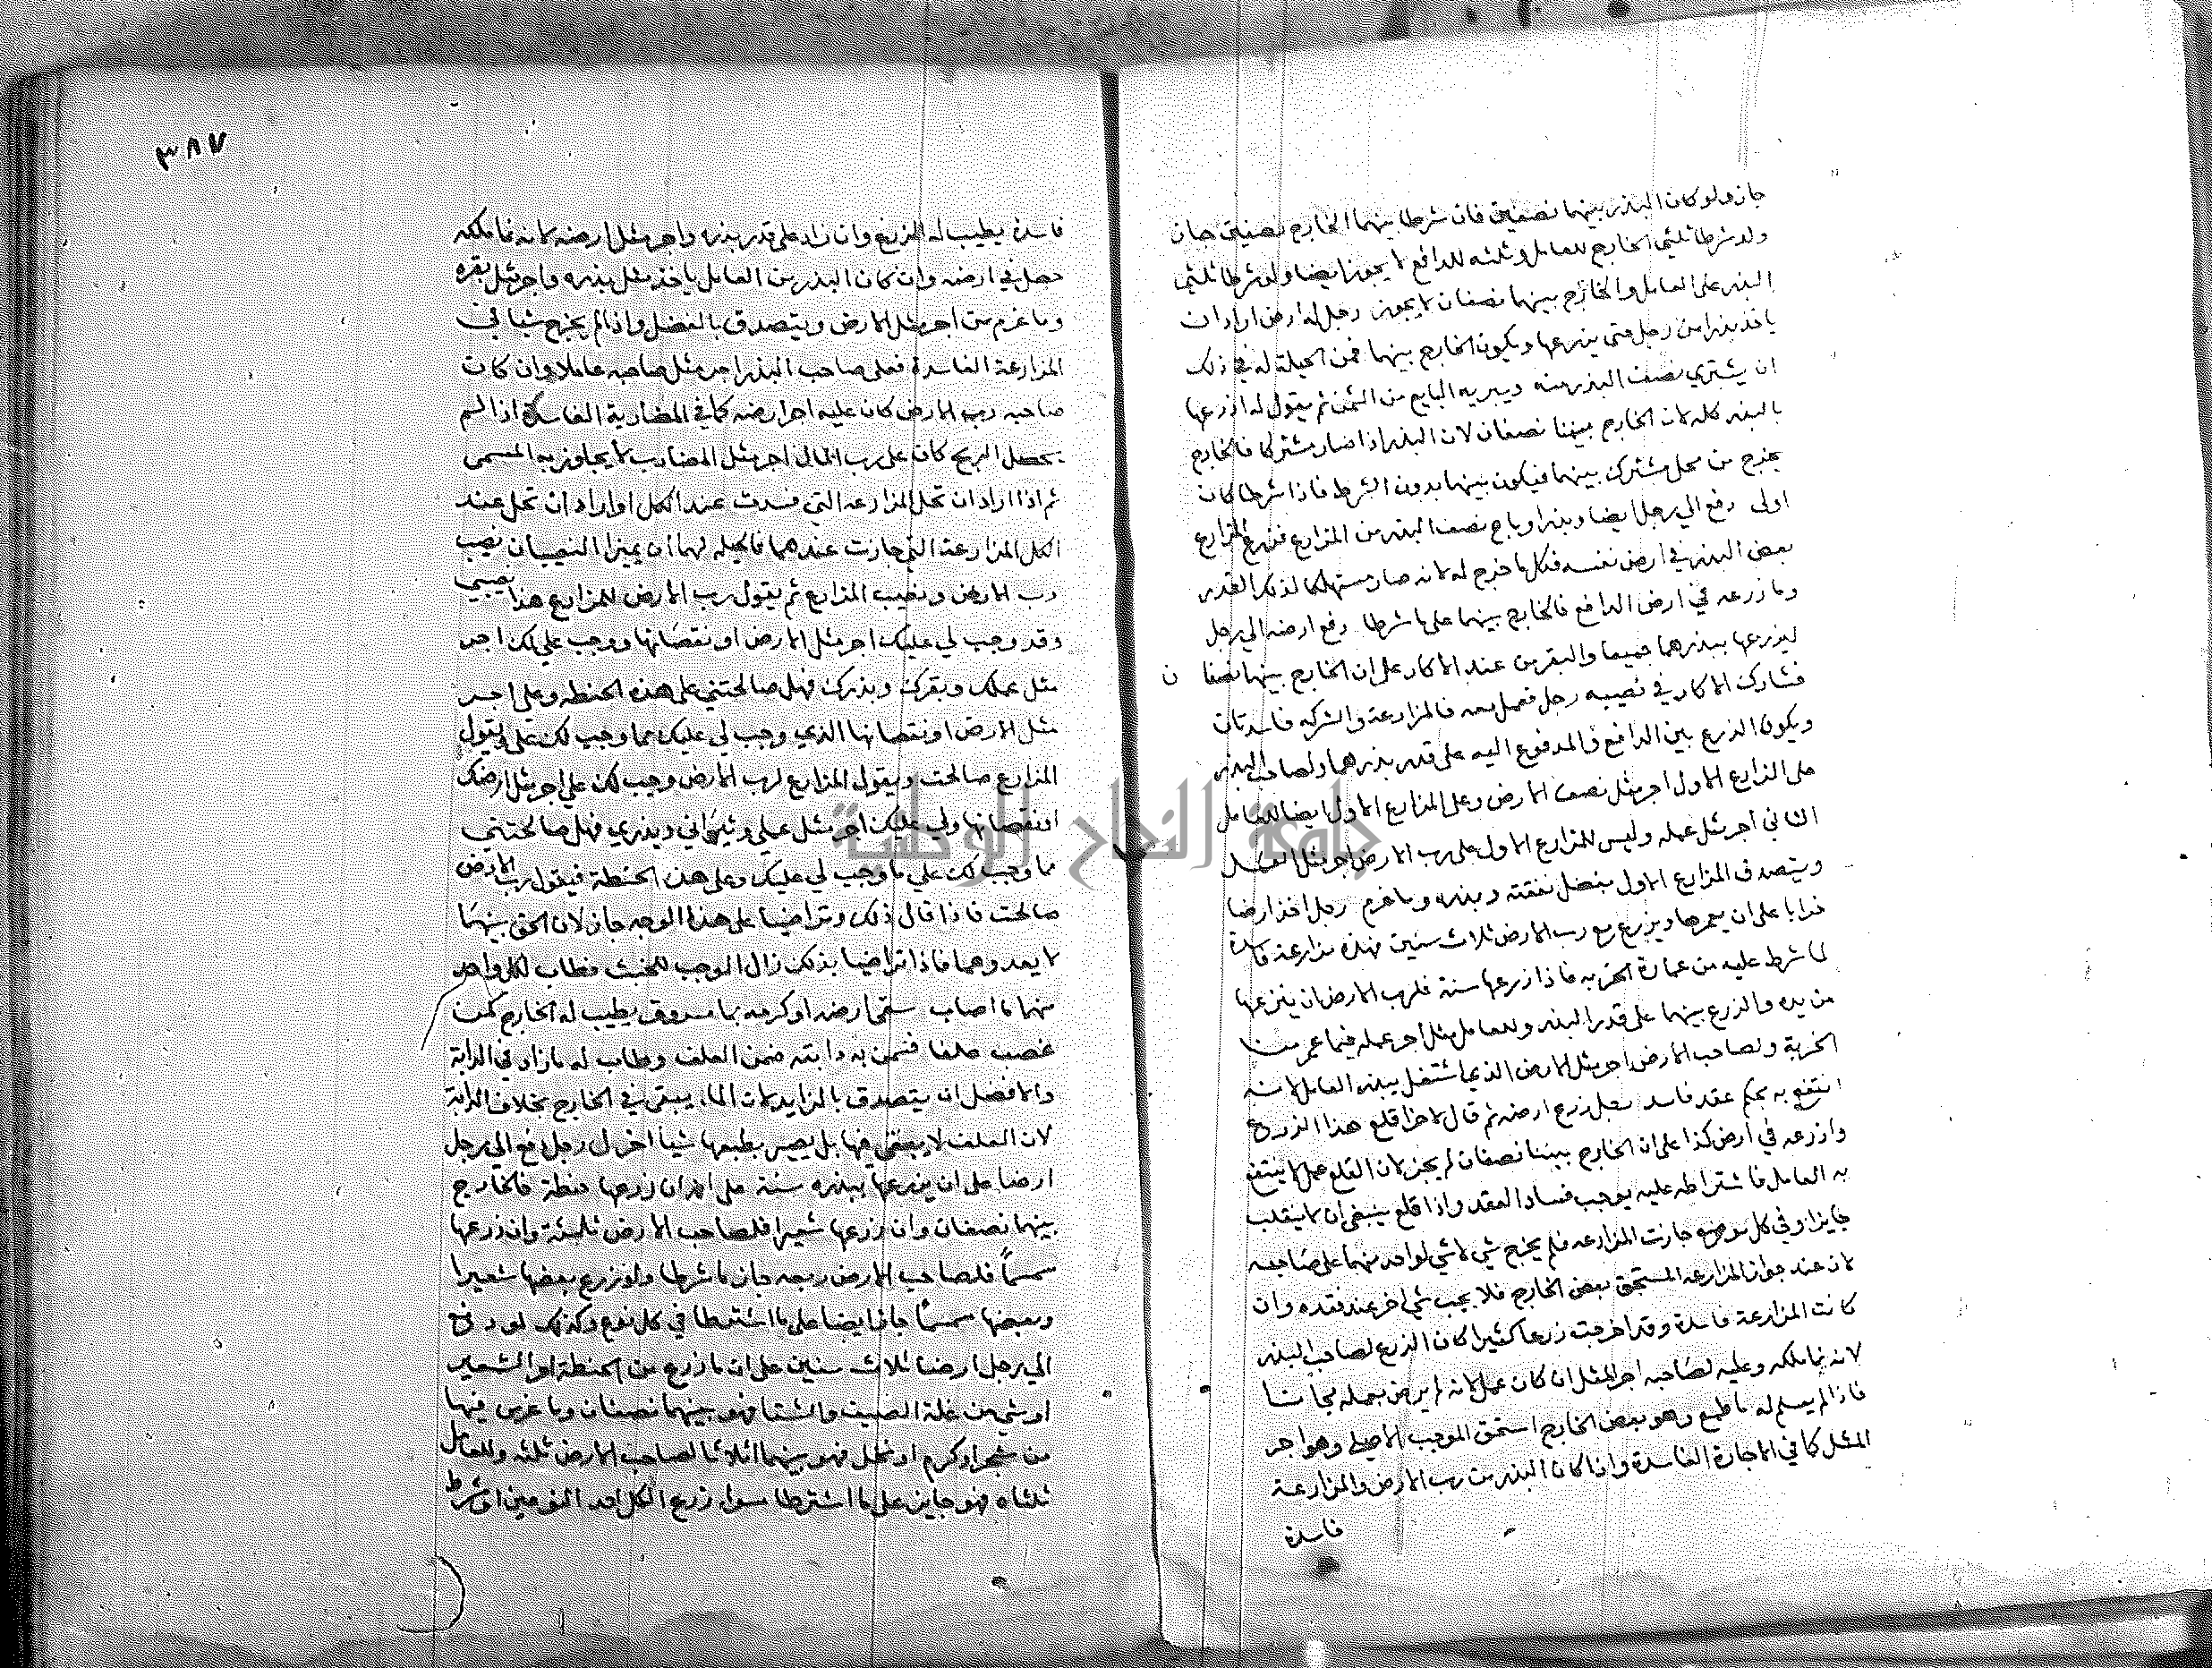 جاز ولو كان البذر بينهما نصفين فان شرطا بينهما الخارج نصفين جاز
ولو شرطا ثلثي الخارج للعامل وثلثه للدافع لا يجوز ايضا ولو شرطا ثلثي
البذر على العامل والخارج بينهما نصفان لا يجوز رجل له ارض اراد ان
ياخذ بذرا من رجل حتى يزرعها ويكون الخارج بينهما فمن الحيلة له في ذلك
ان يشتري نصف البذر منه ويبريه البايع من الثمن ثم يقول له ازرعها
بالبذر كله لان الخارج بيننا نصفان لان البذر اذا صار مشتركا فالخارج
يخرج من محل مشترك بينهما فيكون بينهما بدون الشرط فاذا شرطا كان
اولى دفع الى رجل ايضا وبذرا وباع نصف البذر من المزارع فزرع المزارع
بعض البذر في ارض نفسه فكل ما خرج له لانه صار مستهلكا لذلك القدر
وما زرعه في ارض الدافع فالخارج بينهما على ما شرطا دفع ارضه الى رجل
ليزرعها ببذرهما جميعا والبقر من عند الاكار على ان الخارج بينهما نصفان
فشارك الاكار في نصيبه رجل فعمل معه فالمزارعة والشركه فاسدتان
ويكون الزرع بين الدافع والمدفوع اليه على قدر بذرهما ولصاحب البذر
على الزارع الاول اجر مثل نصف الارض وعلى المزارع الاول ايضا للعامل
الثاني اجر مثل عمله وليس للمزارع الاول على رب الارض اجر مثل العمل
ويتصدق المزارع الاول بفضل نفقته وبذره وما غرم رجل اخذ ارضا
خرابا على ان يعمرها ويزرع مع رب الارض ثلاث سنين فهذه مزارعة فاسدة
لما شرط عليه من عمارة الخربه فاذا زرعها سنة فلرب الارض ان ينزعها
من يده والزرع بينهما على قدر البذر وللعامل مثل اجر عمله فيما عمر من
الخربة ولصاحب الارض اجر مثل الارض الذي اشتغل ببذر العامل لانه
انتفع به بحكم عقد فاسد رجل زرع ارضه ثم قال لاخر اقلع هذا الزرع
وازرعه في ارض كذا على ان الخارج بيننا نصفان لم يجز لان القلع عمل لا ينتفع
به العامل فاشتراطه عليه يوجب فساد العقد واذا قلع ينبغي ان لا ينقلب
جايزا وفي كل موضع جازت المزارعه فلم يخرج شي لا شي لواحد منهما على صاحبه
لان عند جواز المزارعه المستحق بعض الخارج فلا يجب شي اخر عند فقده وان
كانت المزارعة فاسدة وقد اخرجت زرعا كثيرا كان الزرع لصاحب البذر
لانه نما ملكه وعليه لصاحبه اجر المثل ان كان عمل لانه لم يرض بعمله مجانا
فاذا لم يسلم له ما طمع وهو بعض الخارج استحق الموجب الاصلي وهو اجر
المثل كما في الاجارة الفاسدة واذا كان البذر من رب الارض والمزارعة
فاسدة
٣٨٧
فاسدة يطيب له الزرع وان زاد على قدر بذره واجر مثل ارضه لانه نما ملكه
حصل في ارضه وان كان البذر من العامل ياخذ مثل بذره واجر مثل بقره
وما غرم من اجر مثل الارض ويتصدق بالفضل واذا لم يخرج شيا في
المزارعة الفاسدة فعلى صاحب البذر اجر مثل صاحبه عاملا وان كان
صاحبه رب الارض كان عليه اجر ارضه كما في المضاربة الفاسدة اذا لم
يحصل الربح كان على رب المال اجر مثل المضارب لا يجاوز به المسمى
ثم اذا اراد ان تحل المزارعه التي فسدت عند الكل او اراد ان تحل عند
الكل المزارعة التي جازت عندهما فالحيله لهما ان يميزا النصيبان نصيب
رب الارض ونصيب المزارع ثم يقول رب الارض للمزارع هذا نصيبي
وقد وجب لي عليك اجر مثل الارض او نقصانها ووجب علي لك اجر
مثل عملك وبقرك وبذرك فهل صالحتني على هذه الحنطه وعلى اجر
مثل الارض او نقصانها الذي وجب لي عليك عما وجب لك علي ويقول
المزارع صالحت ويقول المزارع لرب الارض وجب لك علي اجر مثل ارضك
او نقصانها ولي عليك اجر مثل عملي وثيراني وبذري فهل صالحتني
عما وجب لك علي ما وجب لي عليك وعلى هذه الحنطة فيقول رب الارض
صالحت فاذا قال ذلك وتراضيا على هذا الوجه جاز لان الحق بينهما
لا يعدوهما فاذا تراضيا بذلك زال الموجب للخبث فطاب لكل واحد
منهما ما اصاب سقى ارضه او كرمه بما مسروق يطيب له الخارج كمن
غصب علفا فسمن به دابته ضمن العلف وطاب له ما زاد في الدابة
والافضل ان يتصدق بالزايد لان الماء يبقى في الخارج بخلاف الدابة
لان العلف لا يبقى فيها بل يصير بطبعها شيا اخر رجل دفع الى رجل
ارضا على ان يزرعها ببذره سنة على انه ان زرعها حنطة فالخارج
بينهما نصفان وان زرعها شعيرا فلصاحب الارض ثلثه وان زرعها
سمسماً فلصاحب الارض ربعه جاز ما شرطا ولو زرع بعضها شعيرا
وبعضها سمسماً جاز ايضا على ما اشترطا في كل نوع وكذلك لو دفع
الى رجل ارضا ثلاث سنين على ان ما زرع من الحنطة او الشعير
او شي من غلة الصيف والشتا فهو بينهما نصفان وما غرس فيها
من شجر او كرم او نخل فهو بينهما اثلاثا لصاحب الارض ثلثه وللعامل
ثلثاه فهو جايز على ما اشترطا سواء زرع الكل احد النوعين او شرط
جامعة النجاح الوطنية